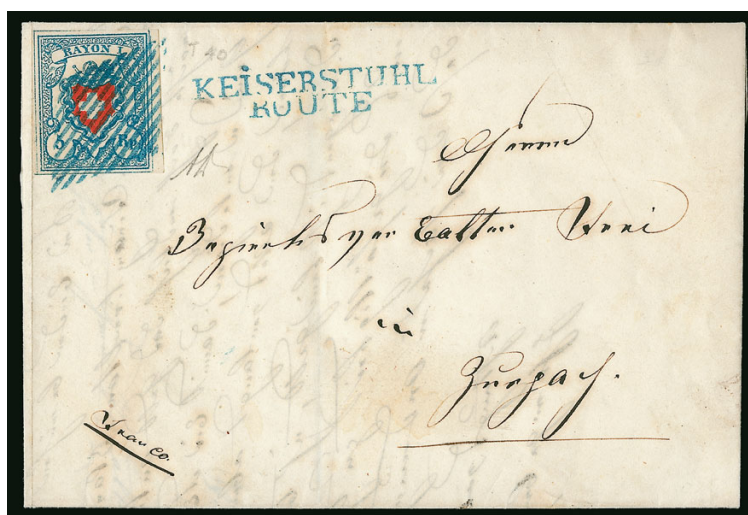 RAYON I
5 Rp.
T 40
KEISERSTUHL
ROUTE
Herrn
Bezirksverwalter Frei
in
Zurzach.
Franco.